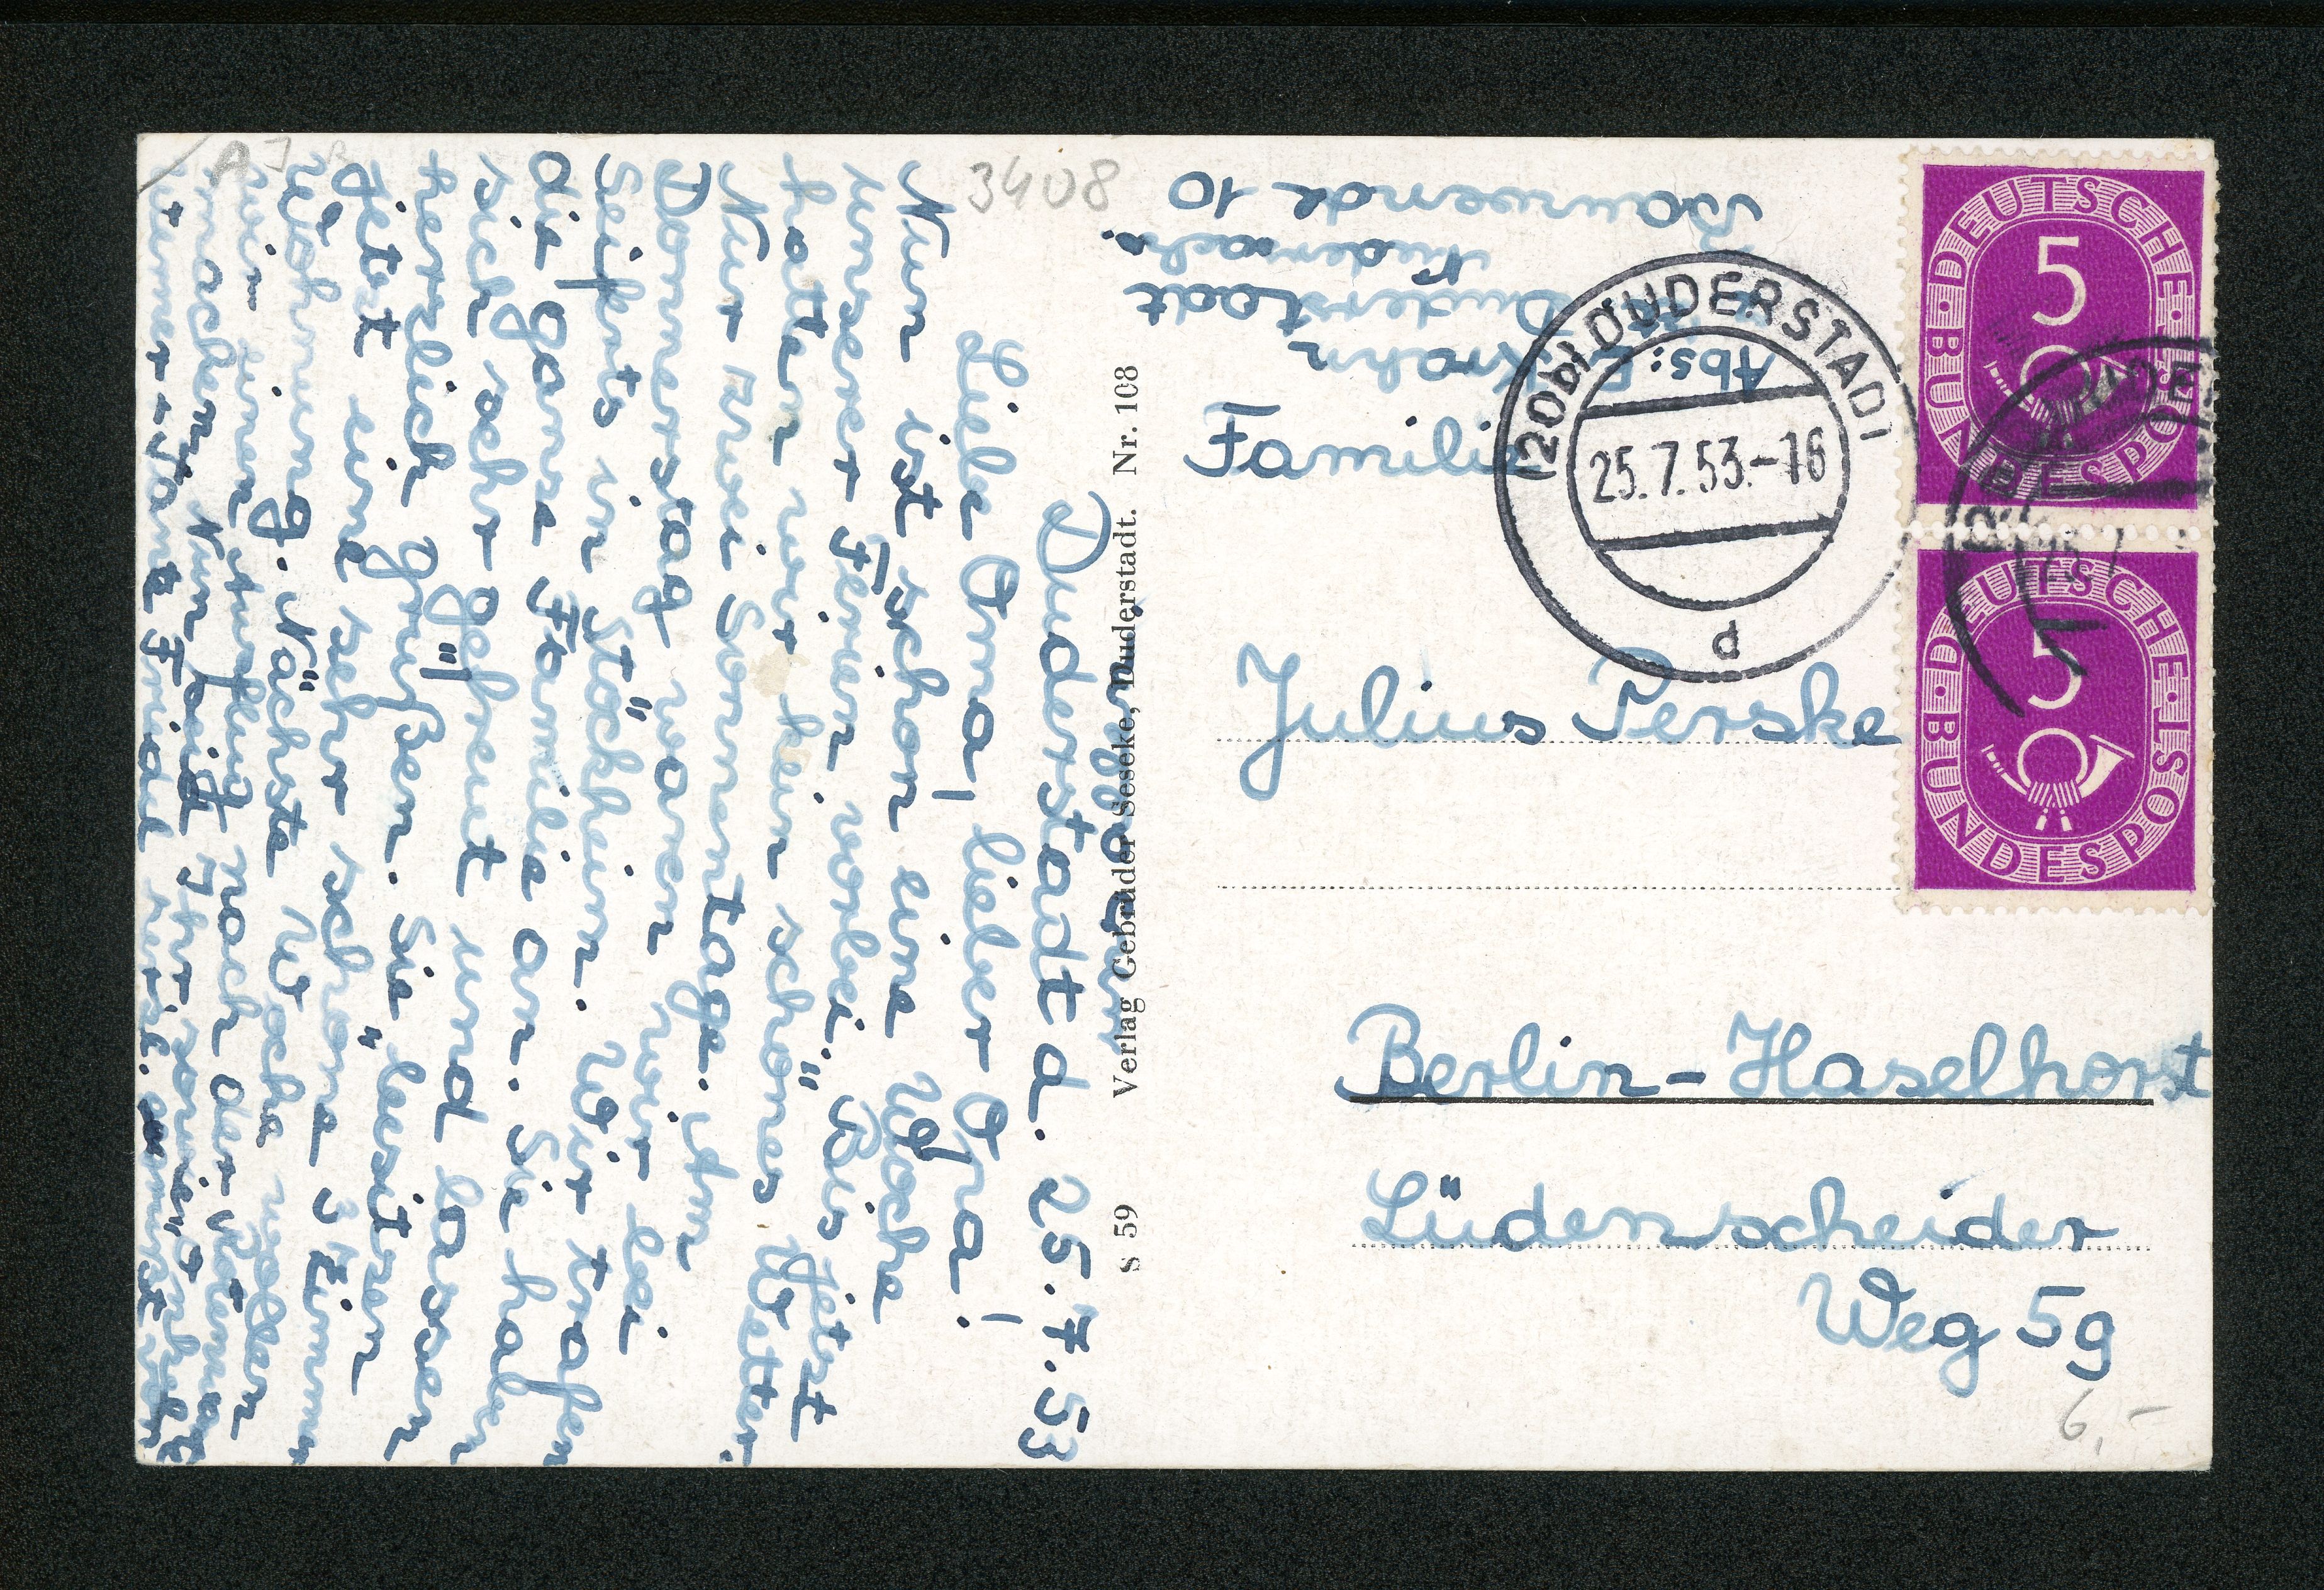 Duderstadt d. 25.7.53
Liebe Oma, lieber Opa!
Nun ist schon eine Woche
unserer Ferien vorbei. Bis jetzt
hatten wir kein schönes Wetter.
Nur zwei Sonnentage. Am
Donnerstag waren wir bei
Seiferts in Stöckheim. Wir trafen
die ganze Familie an. Sie haben
sich sehr gefreut und lassen
herzlich grüßen. Sie besitzen
jetzt eine sehr schöne 3 Zimm
Wohnung. Nächste Woche wollen
wir einen Ausflug nach der
machen. Nun seid Ihr
von
3408
Abs: E. Krohn
Duderstadt
Niedersachs.
10
S 59 Verlag Gebrüder Seseke, Duderstadt. Nr. 108
Familie
Julius Perske
Berlin-Haselhorst
Lüdenscheider
Weg 59
6,-
(20b) DUDERSTADT
25.7.53.-16
d
DEUTSCHE BUNDESPOST
5
DEUTSCHE BUNDESPOST
5